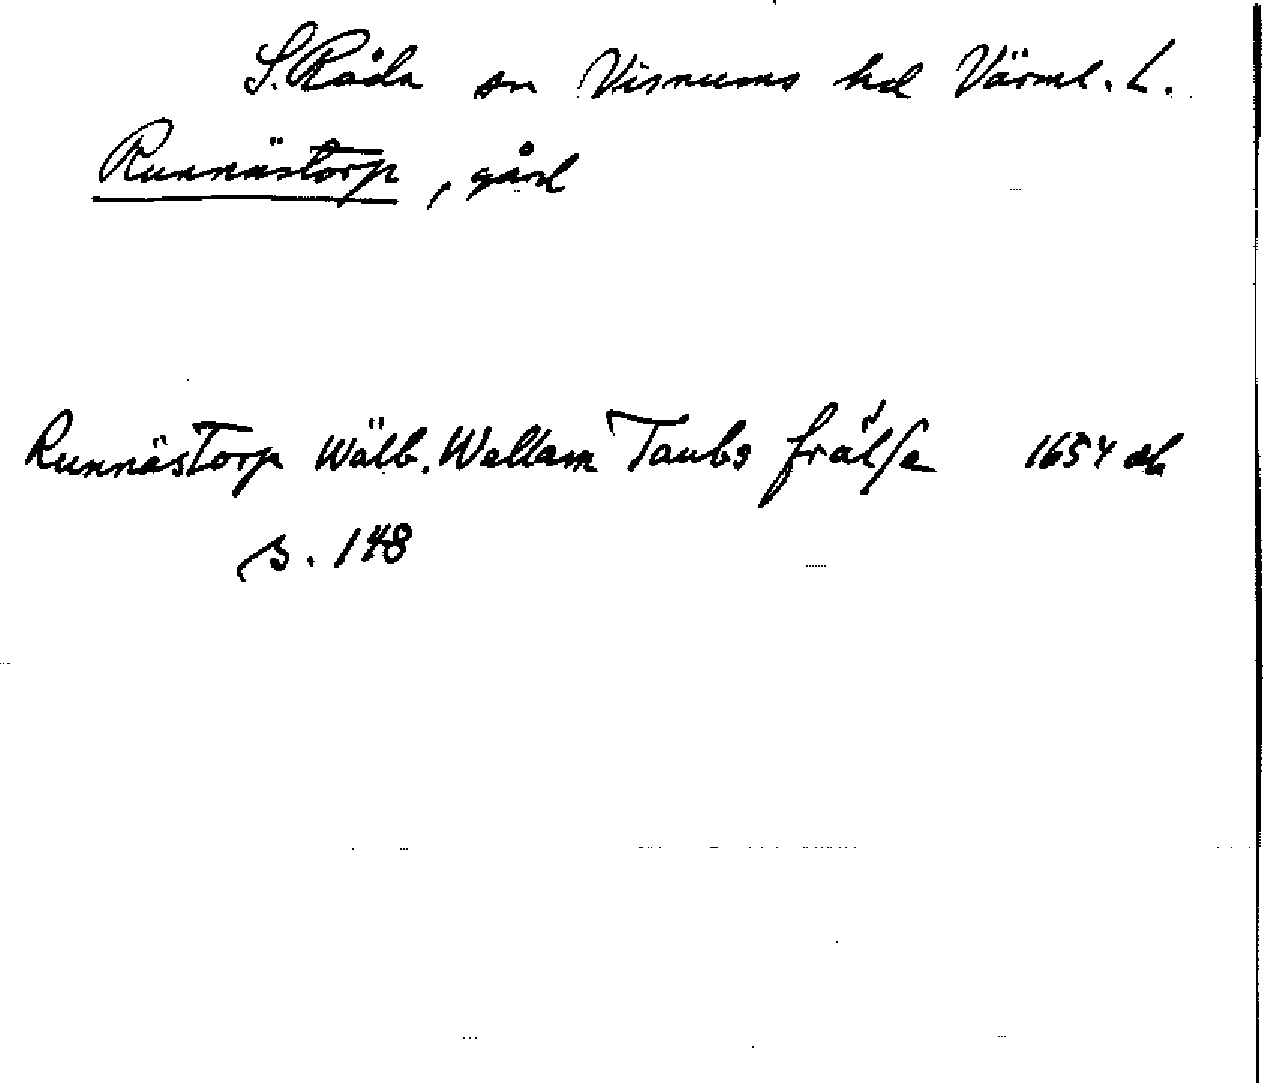 S. Råda sn Visnums hd Värml. L.
Runnästorp, gård
Runnästorp Wälb. Wellam Taubs frälse 1654 Jb
s. 148